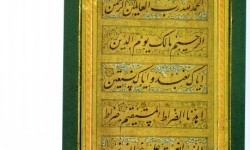 الحمد لله رب العالمين الرحمن
الرحيم مالك يوم الدين
اياك نعبد و اياك نستعين
اهدنا الصراط المستقيم صراط